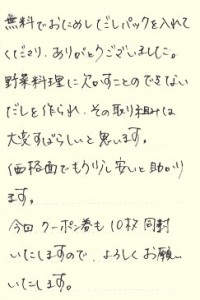 無料でおためしだしパックを入れて
くださり、ありがとうございました。
野菜料理に欠かすことのできない
だしを作られ、その取り組みは
大変すばらしいと思います。
価格面でもう少し安いと助かり
ます。
今回クーポン券も10枚同封
いたしますので、よろしくお願い
いたします。